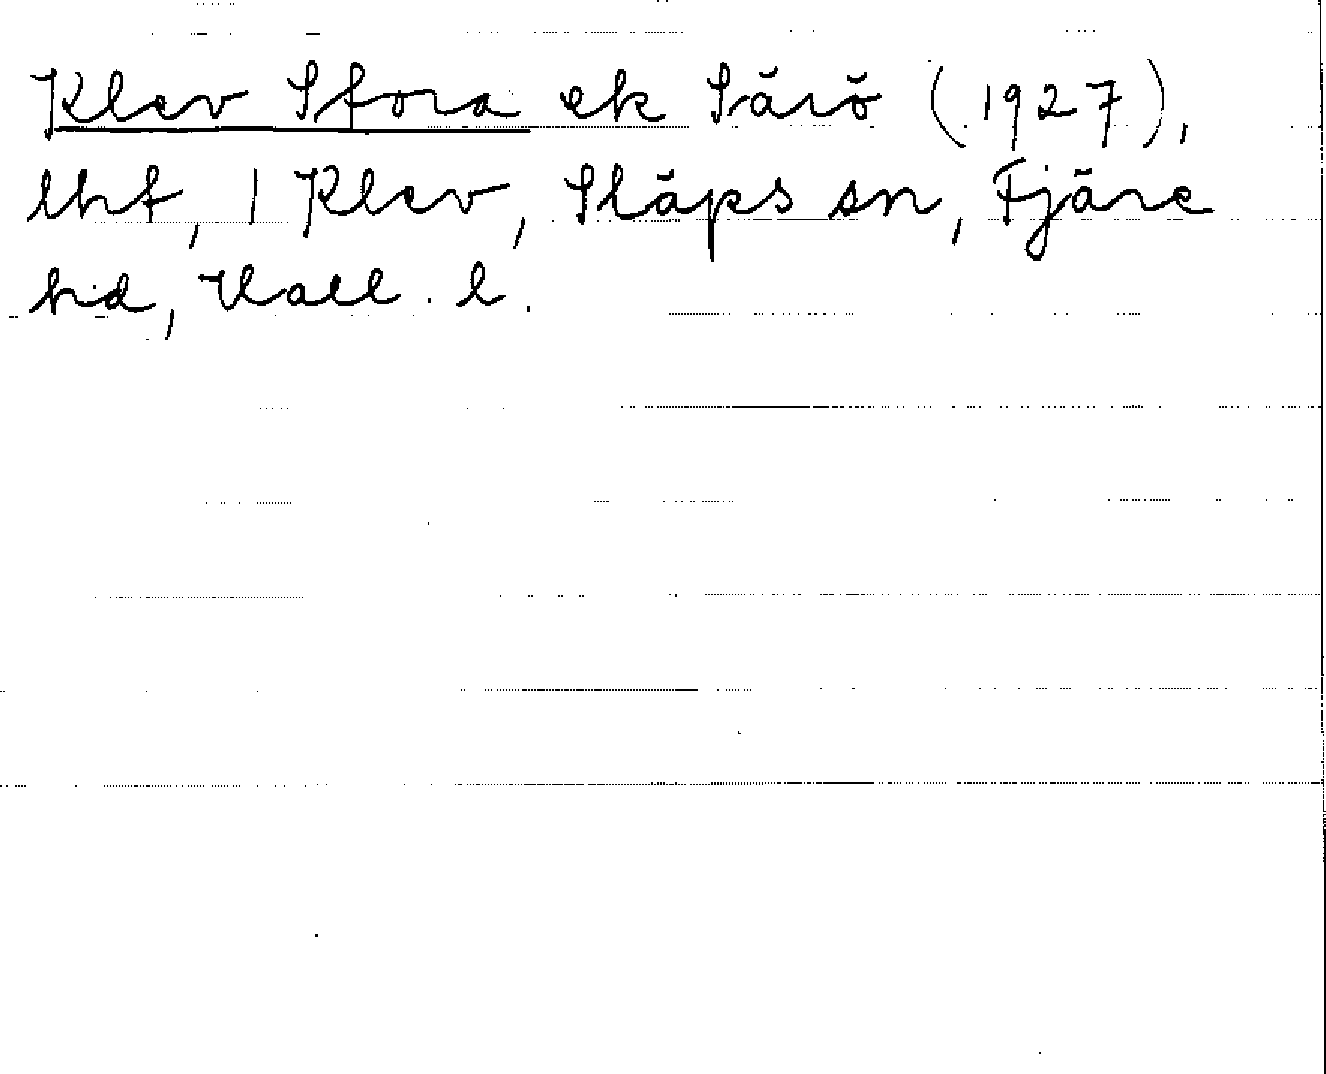 Klev Stora ek Särö (1927),
lht, 1 Klev, Släps sn, Fjäre
hd, Hall. l.